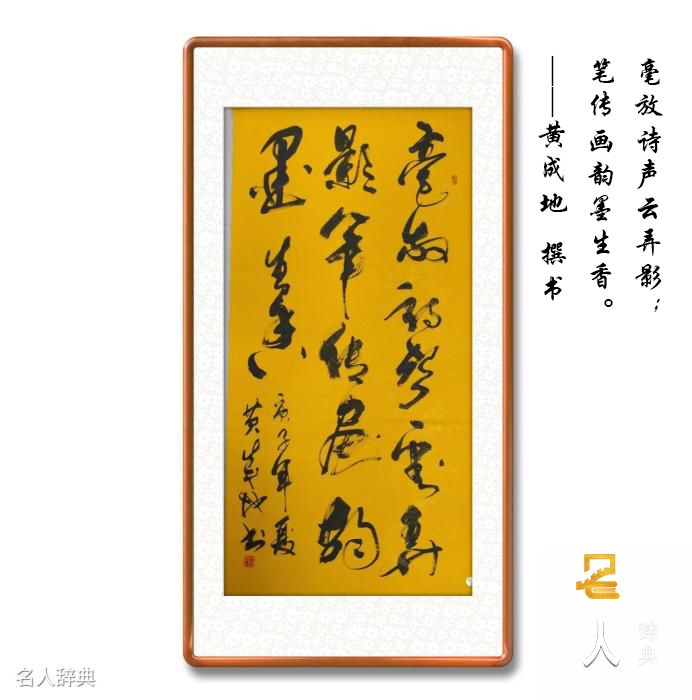 毫放诗声云弄影；
笔传画韵墨生香。
——黄成地 撰书
毫放詩聲雲弄
影筆传畫韵
墨生香
庚子年夏
黄成地书
名
人
辞典
名人辞典